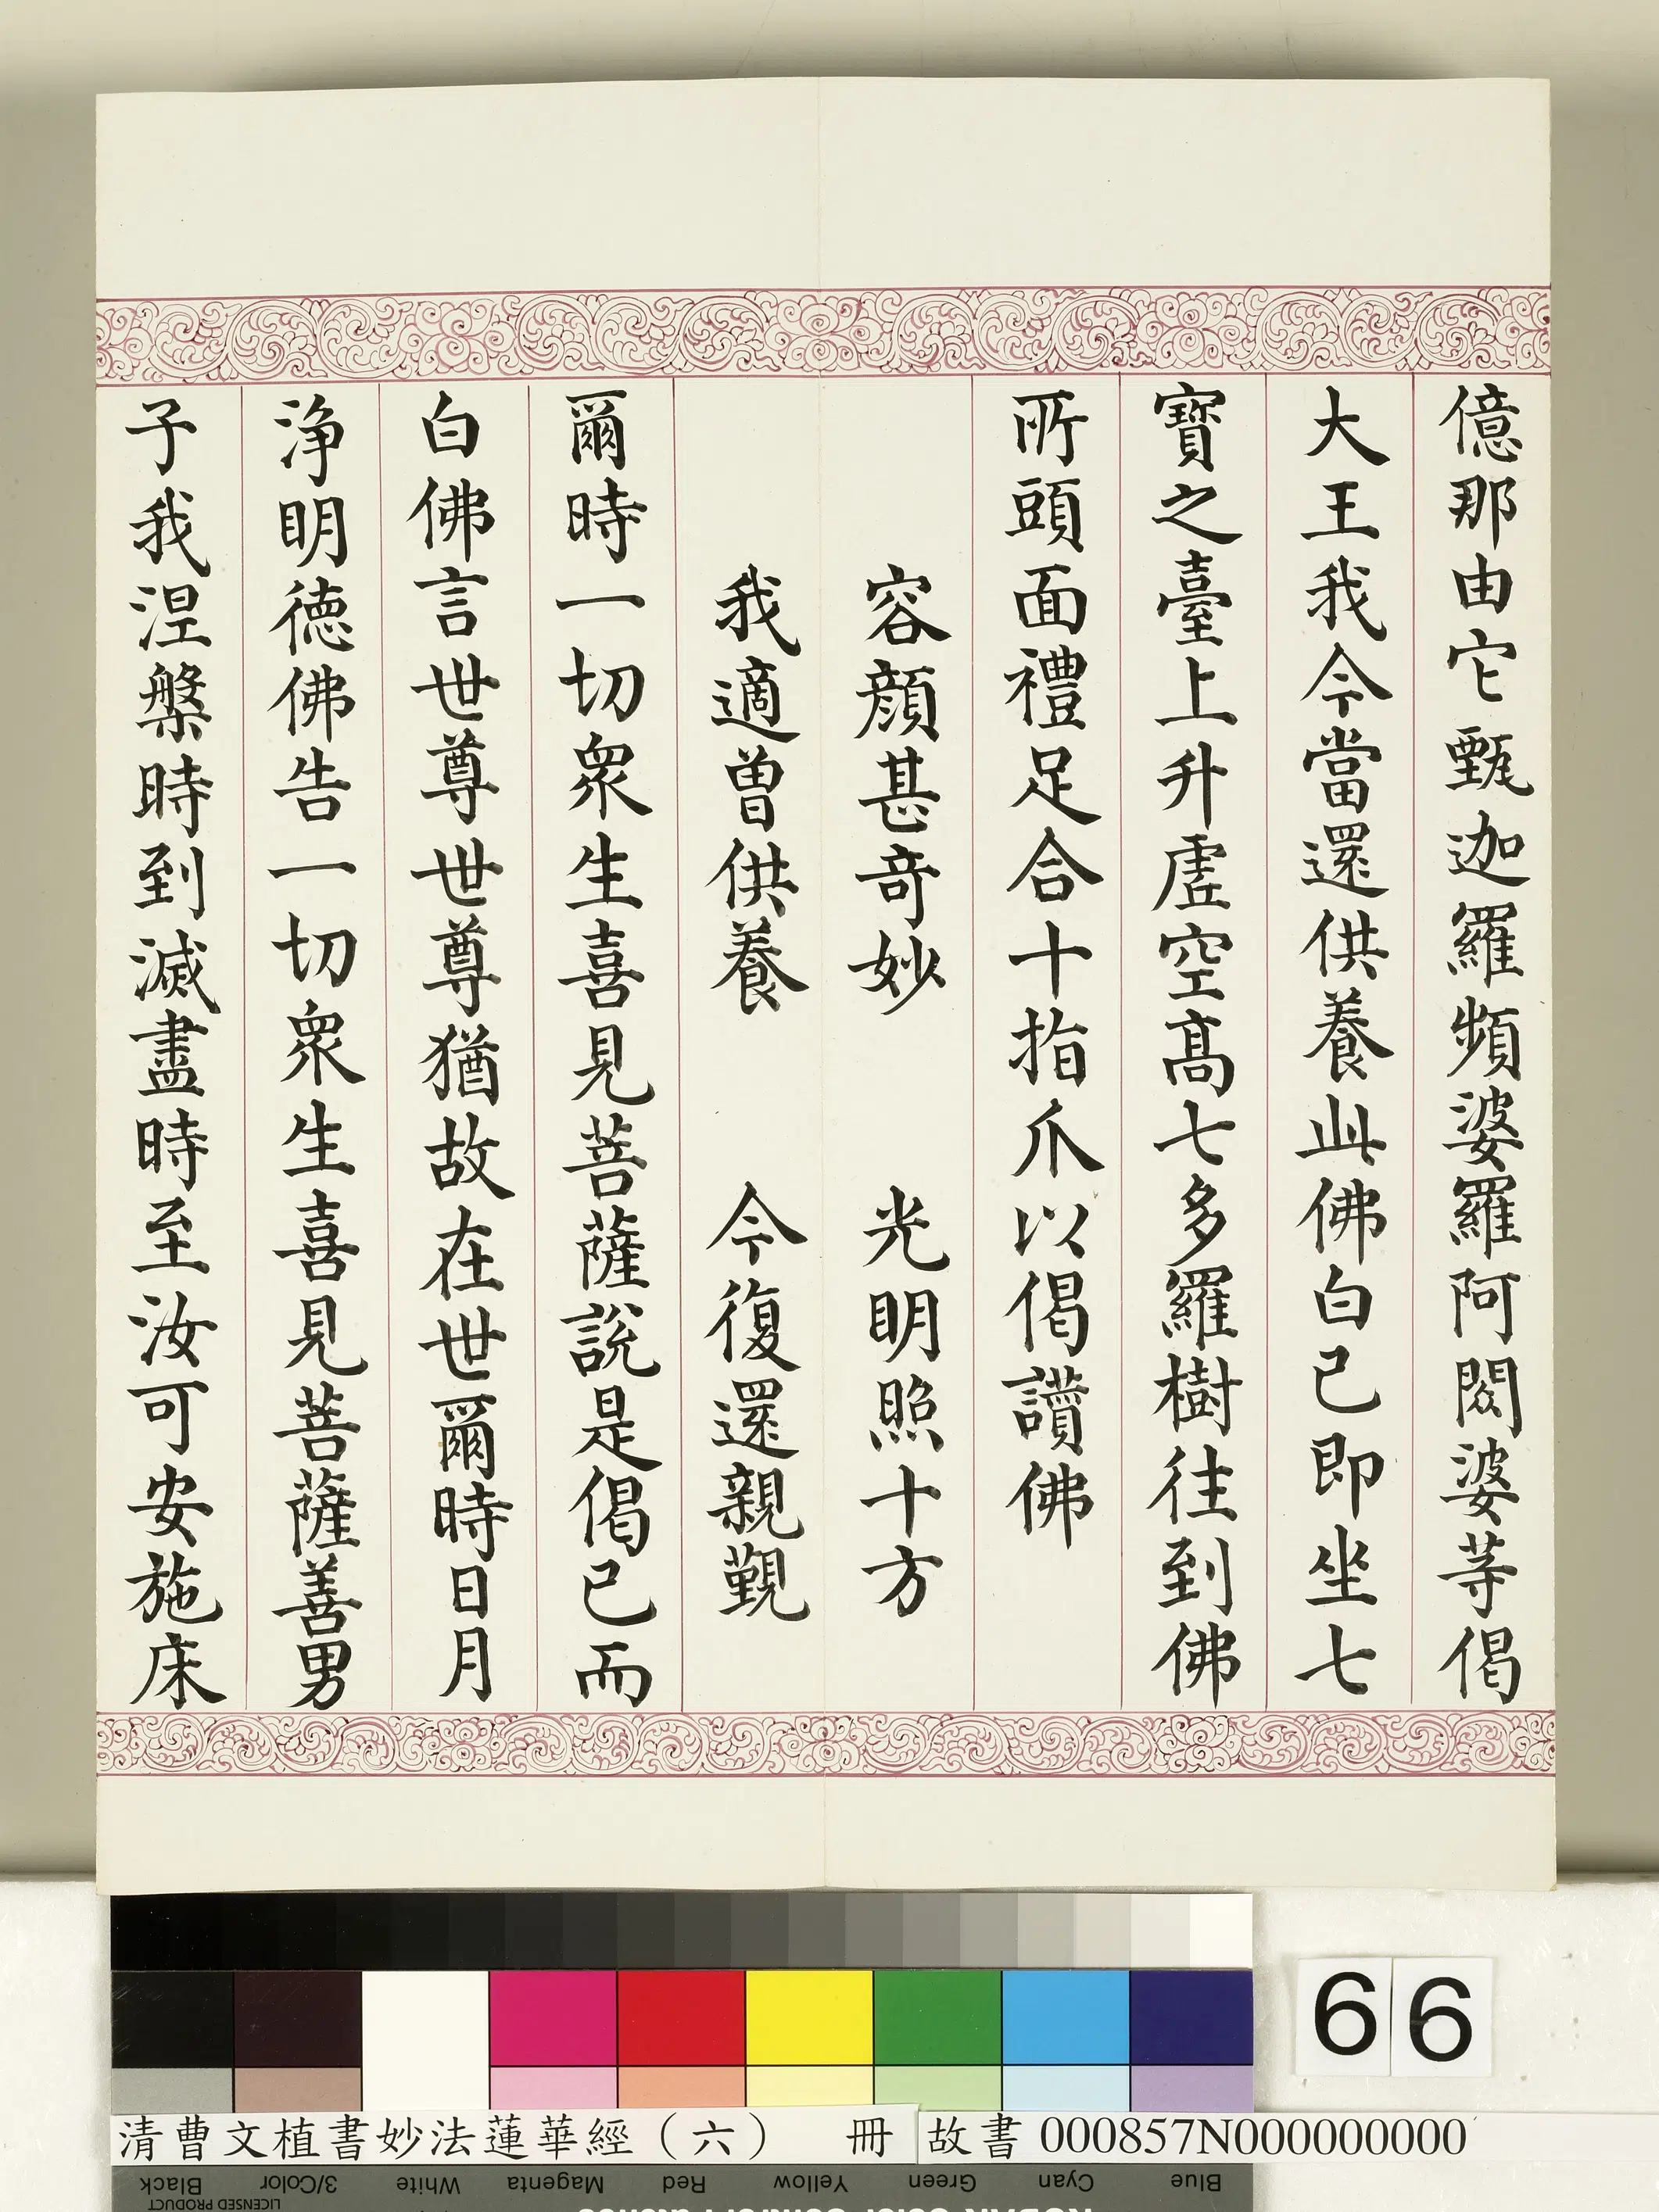 億那由它甄迦羅頻婆羅阿閦婆等偈
大王我今當還供養此佛白已即坐七
寶之臺上升虛空高七多羅樹往到佛
所頭面禮足合十指爪以偈讚佛
容顏甚奇妙　光明照十方
我適曾供養　今復還親覲
爾時一切眾生喜見菩薩說是偈已而
白佛言世尊世尊猶故在世爾時日月
淨明德佛告一切眾生喜見菩薩善男
子我涅槃時到滅盡時至汝可安施床
66
清曹文植書妙法蓮華經（六）　冊
故書 000857N000000000
Black 3/Color White Magenta Red Yellow Green Cyan Blue
LICENSED PRODUCT